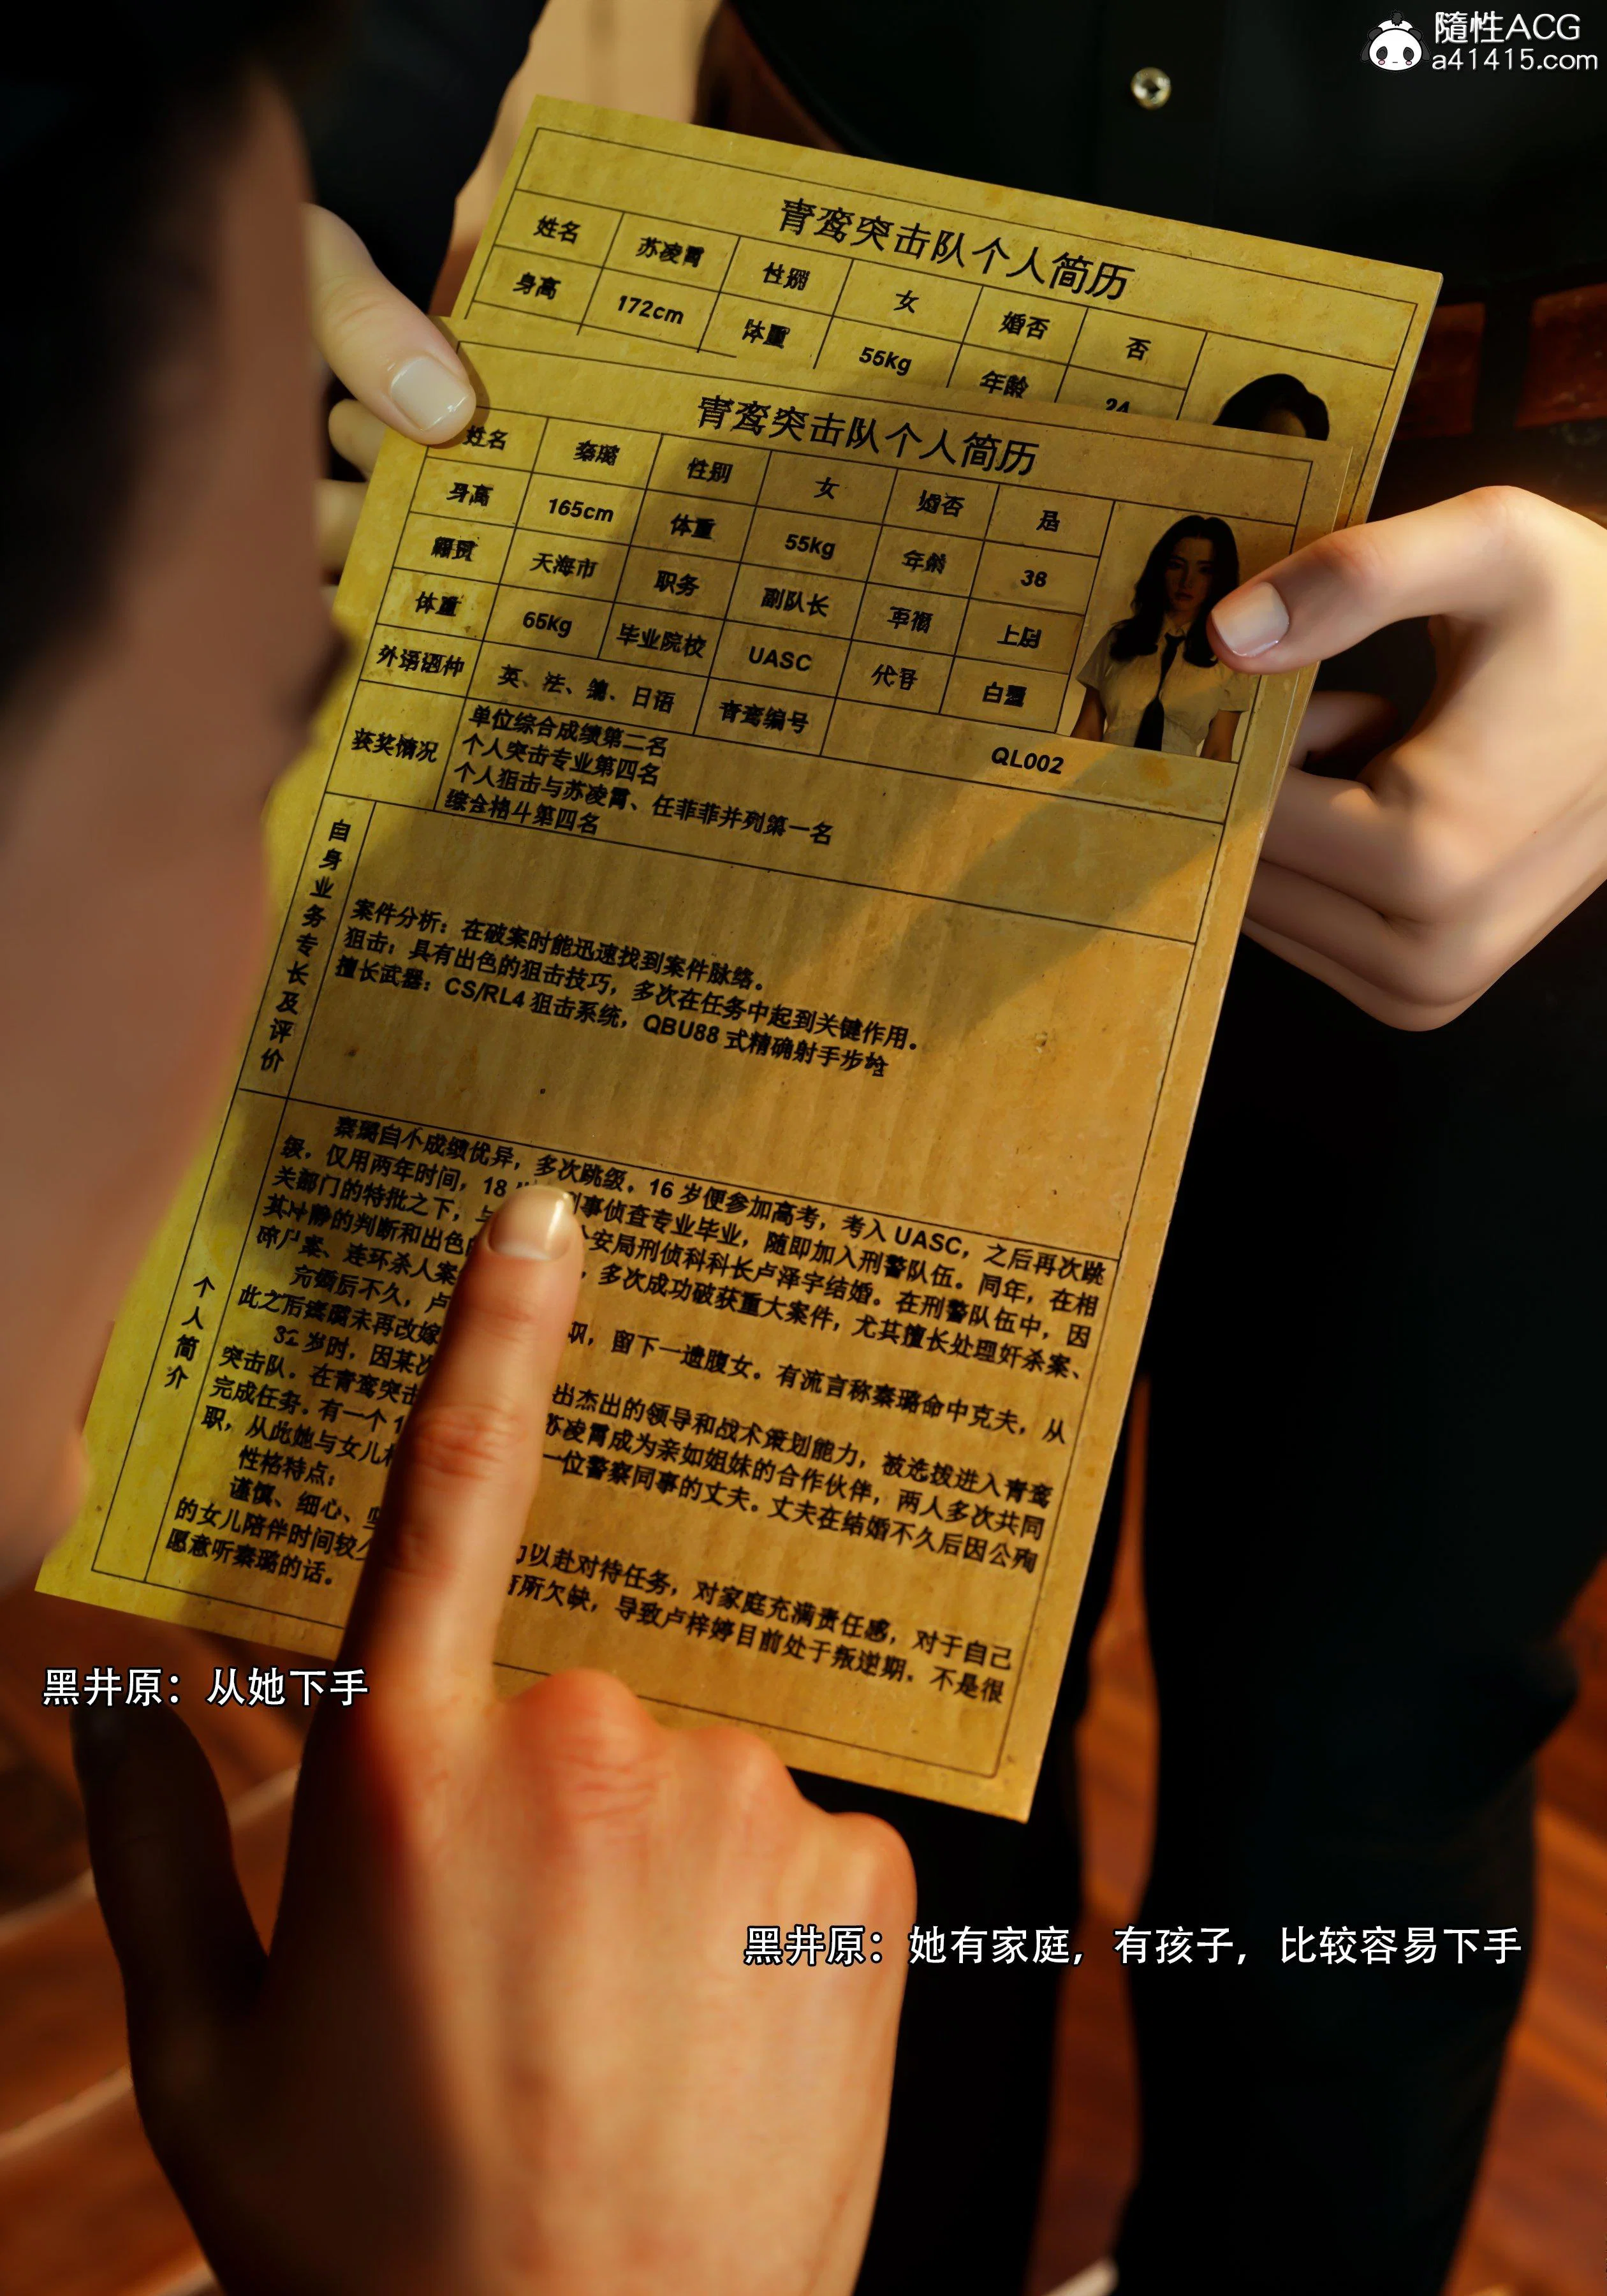 隨性ACG
a41415.com
青鸾突击队个人简历
姓名 苏凌霄 性别 女 婚否 否
身高 172cm 体重 55kg 年龄 24
青鸾突击队个人简历
姓名 秦璐 性别 女 婚否 是
身高 165cm 体重 55kg 年龄 38
籍贯 天海市 职务 副队长 军衔 上尉
体重 65kg 毕业院校 UASC 代号 白鹭
外语语种 英、法、德、日语 青鸾编号 QL002
获奖情况
单位综合成绩第二名
个人突击专业第四名
个人狙击与苏凌霄、任菲菲并列第一名
综合格斗第四名
自身业务专长及评价
案件分析：在破案时能迅速找到案件脉络。
狙击：具有出色的狙击技巧，多次在任务中起到关键作用。
擅长武器：CS/RL4 狙击系统，QBU88 式精确射手步枪
个人简介
秦璐自小成绩优异，多次跳级。16 岁便参加高考，考入 UASC，之后再次跳
级，仅用两年时间，18 刑事侦查专业毕业，随即加入刑警队伍。同年，在相
关部门的特批之下，与 公安局刑侦科科长卢泽宇结婚。在刑警队伍中，因
其冷静的判断和出色的 ，多次成功破获重大案件，尤其擅长处理奸杀案、
碎尸案、连环杀人案
完婚后不久，卢 职，留下一遗腹女。有流言称秦璐命中克夫，从
此之后秦璐未再改嫁
32 岁时，因某次 出杰出的领导和战术策划能力，被选拨进入青鸾
突击队。在青鸾突击 苏凌霄成为亲如姐妹的合作伙伴，两人多次共同
完成任务。有一个 1 一位警察同事的丈夫。丈夫在结婚不久后因公殉
职，从此她与女儿相
性格特点：
谨慎、细心、坚 力以赴对待任务，对家庭充满责任感，对于自己
的女儿陪伴时间较少 有所欠缺，导致卢梓婷目前处于叛逆期，不是很
愿意听秦璐的话。
黑井原：从她下手
黑井原：她有家庭，有孩子，比较容易下手